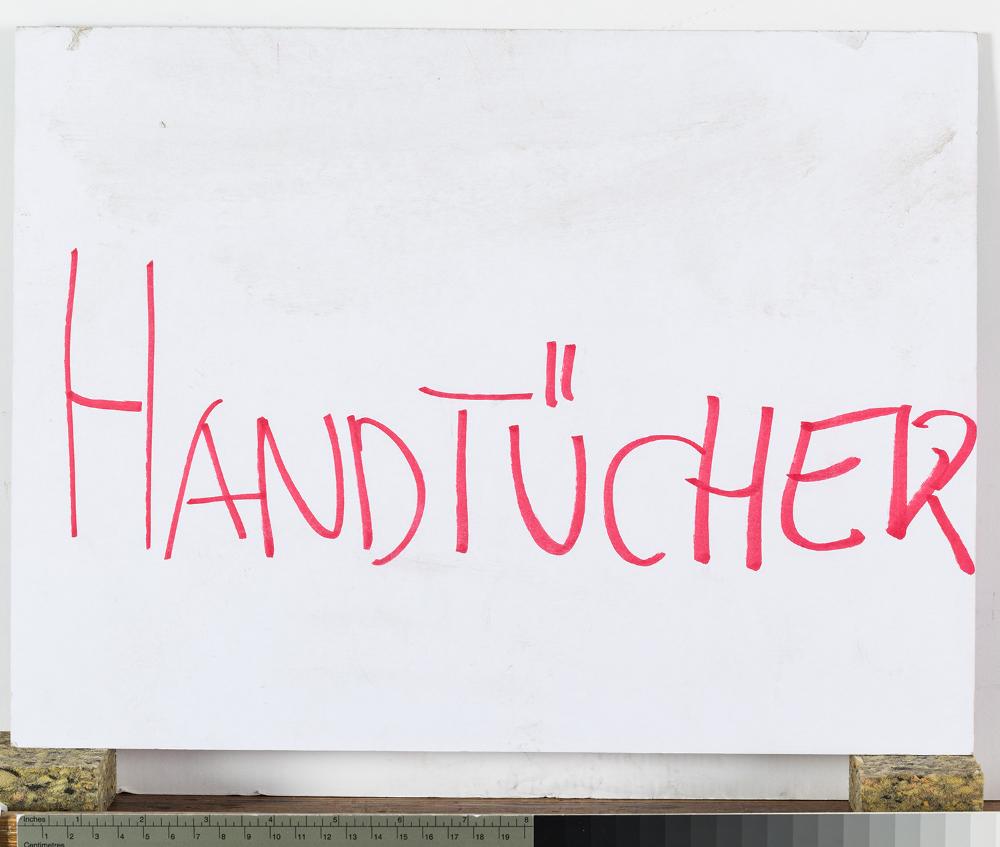 HANDTÜCHER
Inches 1 2 3 4 5 6 7 8
1 2 3 4 5 6 7 8 9 10 11 12 13 14 15 16 17 18 19
Centimetres